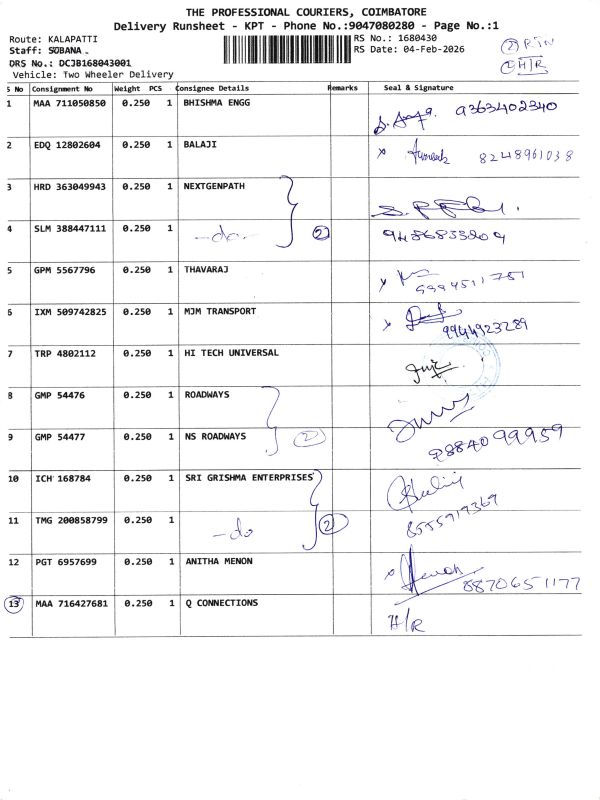 THE PROFESSIONAL COURIERS, COIMBATORE
Delivery Runsheet - KPT - Phone No.:9047080280 - Page No.:1
Route: KALAPATTI
RS No.: 1680430
Staff: SOBANA .
RS Date: 04-Feb-2026
② RTN
DRS No.: DCJB168043001
① H/R
Vehicle: Two Wheeler Delivery
S No Consignment No Weight PCS Consignee Details Remarks Seal & Signature
1 MAA 711050850 0.250 1 BHISHMA ENGG 9363402340
2 EDQ 12802604 0.250 1 BALAJI x 8248961038
3 HRD 363049943 0.250 1 NEXTGENPATH
4 SLM 388447111 0.250 1 -do- ② 9486833209
5 GPM 5567796 0.250 1 THAVARAJ x 9994511751
6 IXM 509742825 0.250 1 MJM TRANSPORT x 9944923289
7 TRP 4802112 0.250 1 HI TECH UNIVERSAL
8 GMP 54476 0.250 1 ROADWAYS
9 GMP 54477 0.250 1 NS ROADWAYS ② 9884099959
10 ICH 168784 0.250 1 SRI GRISHMA ENTERPRISES
11 TMG 200858799 0.250 1 -do ② 8555917369
12 PGT 6957699 0.250 1 ANITHA MENON x 8870651177
13 MAA 716427681 0.250 1 Q CONNECTIONS H/R